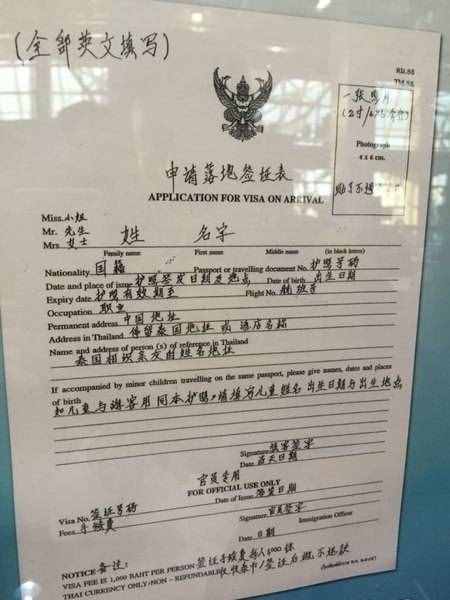 (全部英文填写)
一张照片
Photograph
4 x 6 cm.
申请落地签证表
APPLICATION FOR VISA ON ARRIVAL
Miss.小姐
Mr. 先生
Mrs. 女士 姓 名字
Family name First name Middle name (in block letters)
Nationality 国籍 Passport or travelling document No. 护照号码
Date and place of issue 护照签发日期及地点 Date of birth 出生日期
Expiry date 护照有效期至 Flight No. 航班号
Occupation 职业
Permanent address 中国地址
Address in Thailand 停留泰国地址或酒店名称
Name and address of person (s) of reference in Thailand
泰国相识亲友时姓名地址
If accompanied by minor children travelling on the same passport, please give names, dates and places
of birth
如儿童与游客用同本护照,请填写儿童姓名出生日期与出生地点
Signature 旅客签字
Date 当天日期
官员专用
FOR OFFICIAL USE ONLY
Visa No. 签证号码 Date of Issue 签签日期
Fees 手续费
Signature 官员签字
Immigration Officer
Date 日期
NOTICE 备注:
VISA FEE IS 1,000 BAHT PER PERSON 签证手续费每人1000铢
THAI CURRENCY ONLY / NON - REFUNDABLE 只收泰币/签证后概不退款